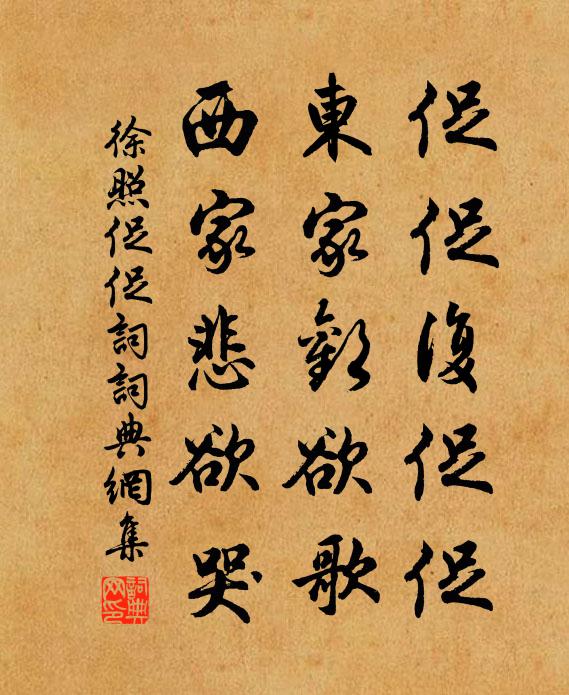 促促復促促
東家歡欲歌
西家悲欲哭
徐照促促詞詞典網集
詞典
网印